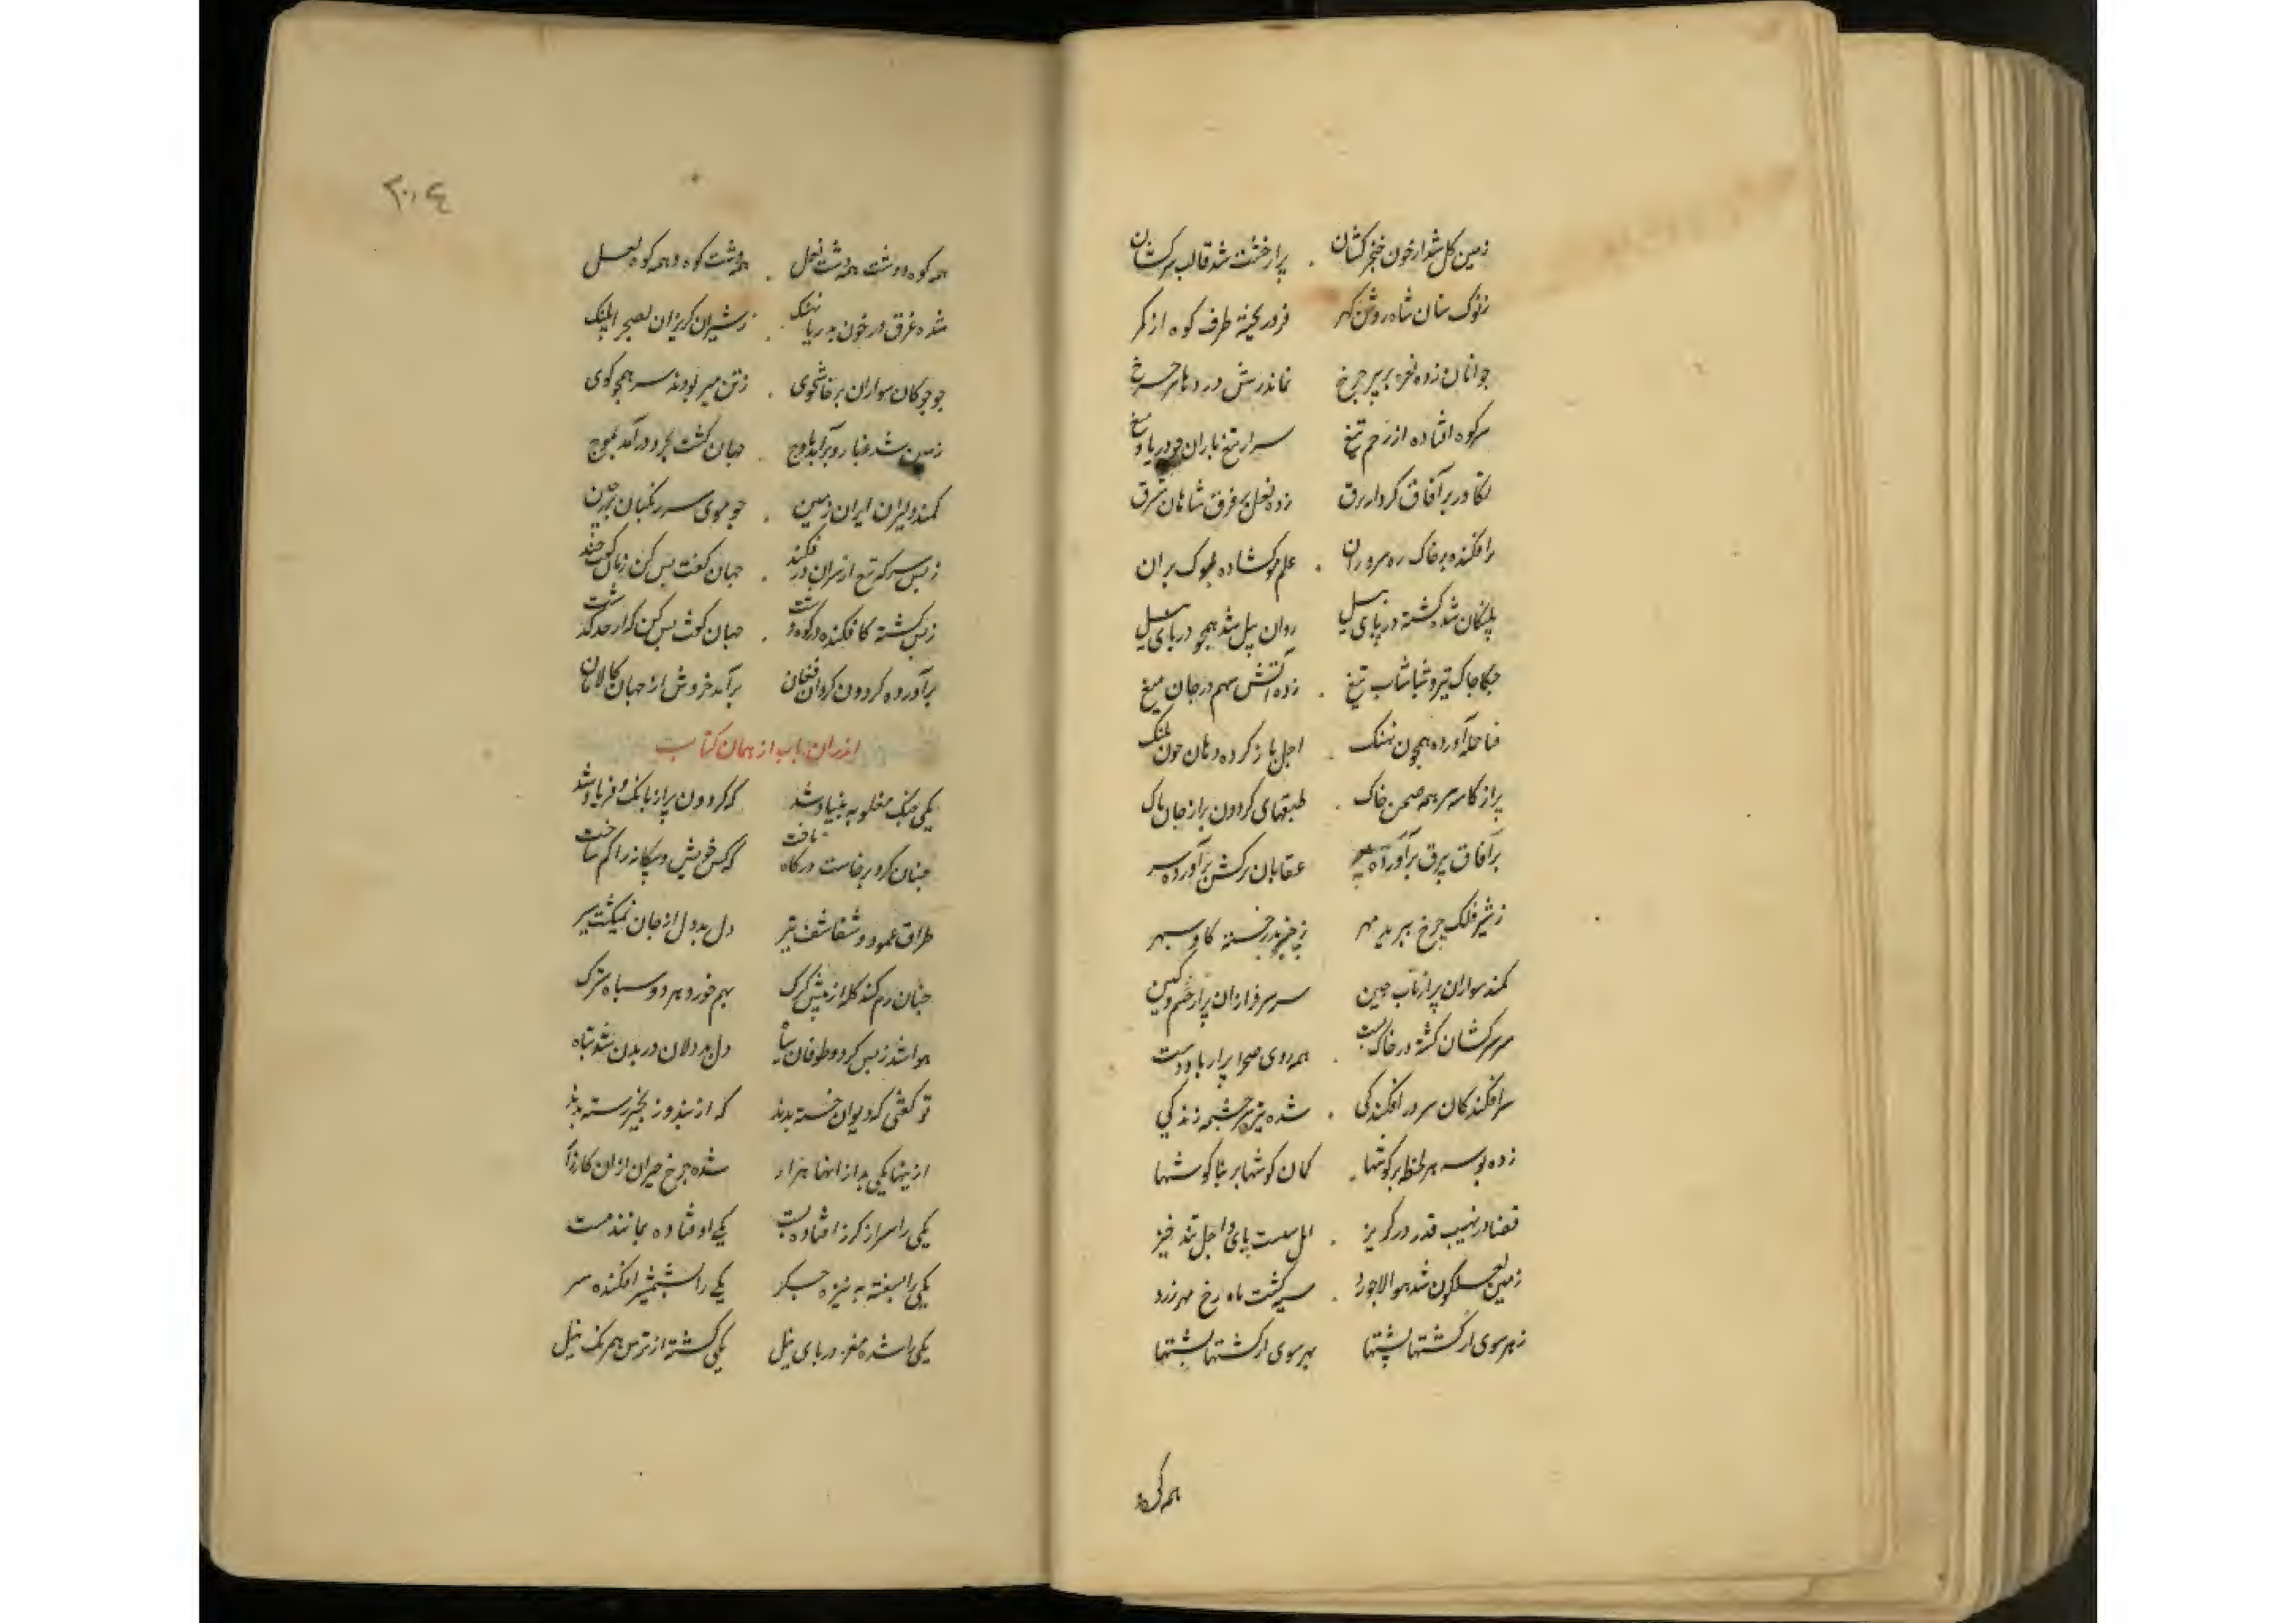 زمین کل شد از خون خنجر کشان . پر از خشت شد قالب سرکشان
ز نوک سنان شاه روشن کهر فرو ریخته طرف کوه از کمر
جوانان زده نعره بر پیر چرخ نمانده درش در دهان چرخ
سر کوه افتاده از زخم تیغ سراز تیغ باران چو دریا و میغ
تکاور بر آفاق کردار برق زده نعل بر فرق شاهان شرق
سر افکنده بر خاک ره سروران . علم مو کشاده بسوک سران
پلنکان شده کشته در پای پیل روان پیل شد همچو دریای نیل
چکاچاک تیر و شباشاب تیغ . زده آتش سهم در جان میغ
قضا حمله آورده همچون نهنک . اجل باز کرده دهان چون پلنک
پر از کاسه سر همه صحن خاک . طبقهای کردون پر از جان پاک
بر آفاق بیرق برآورده پر عقابان ترکش برآورده سر
ز شیر فلک چرخ ببریده مهر ز خنجر خسته کاو سپهر
کمند سواران پر از تاب و چین سر سرفرازان پر از خشم و کین
سر سرکشان کشته در خاک پست . همه روی صحرا پر از پا و دست
سرافکندکان سر در افکندکی . شده نیزه سرچشمه زندکی
زده بوسه هر لحظه بر کوشها . کمان کوشها بر بناکوشها
قضا در نهیب قدر در کریز . امل سست پای و اجل تند خیز
زمین لعلکون شد هوا لاجورد . سیه کشت ماه رخ مهر زرد
ز هر سوی از کشتها پشتها بهر سوی از کشتها پشتها
همه کوه
۲۰۴
همه کوه و دشت و همه دشت نعل . همه دشت کوه و همه کوه لعل
شده غرق در خون بدریا نهنک . ز شیران کریزان بصحرا پلنک
چو چوکان سواران پرخاشجوی . ز تن میربودند سر همچو کوی
زمین شد غبار و برآمد باوج . جهان کشت بحر و درآمد بموج
کمند دلیران ایران زمین . چو موی سر زنکیان پر ز چین
ز بس سر که تیغ از سران در فکند . جهان کفت بس کن زمان کفت چند
ز بس کشته کافکنده در کوه و دشت . جهان کفت بس کن که از حد کذشت
برآورده کردون کردان فغان برآمد خروش از جهان کالامان
اندران باب از همان کتاب
یکی جنک مغلوبه بنیاد شد که کردون پر از بانک و فریاد شد
چنان کرد برخاست در کاه تاخت که کس خویش و بیکانه را کم شناخت
طراق عمود و شقاشق تیر دل بددل از جان نمیکشت سیر
چنان رم کند کله از پیش کرک بهم خورد هر دو سپاه سترک
هوا شد ز بس کرد و طوفان سیاه دل بددلان در بدن شد تباه
تو کفتی که دیوان خسته بدند که از بند و زنجیر رسته بدند
از اینها یکی بد از آنها هزار شده چرخ حیران از ان کارزار
یکی را سر از کرز افتاده پست یکی اوفتاده بمانند مست
یکی را بسفته به نیزه جکر یکی را بشمشیر افکنده سر
یکی را شده مغز دریای نیل یکی کشته از ترس همرنک نیل